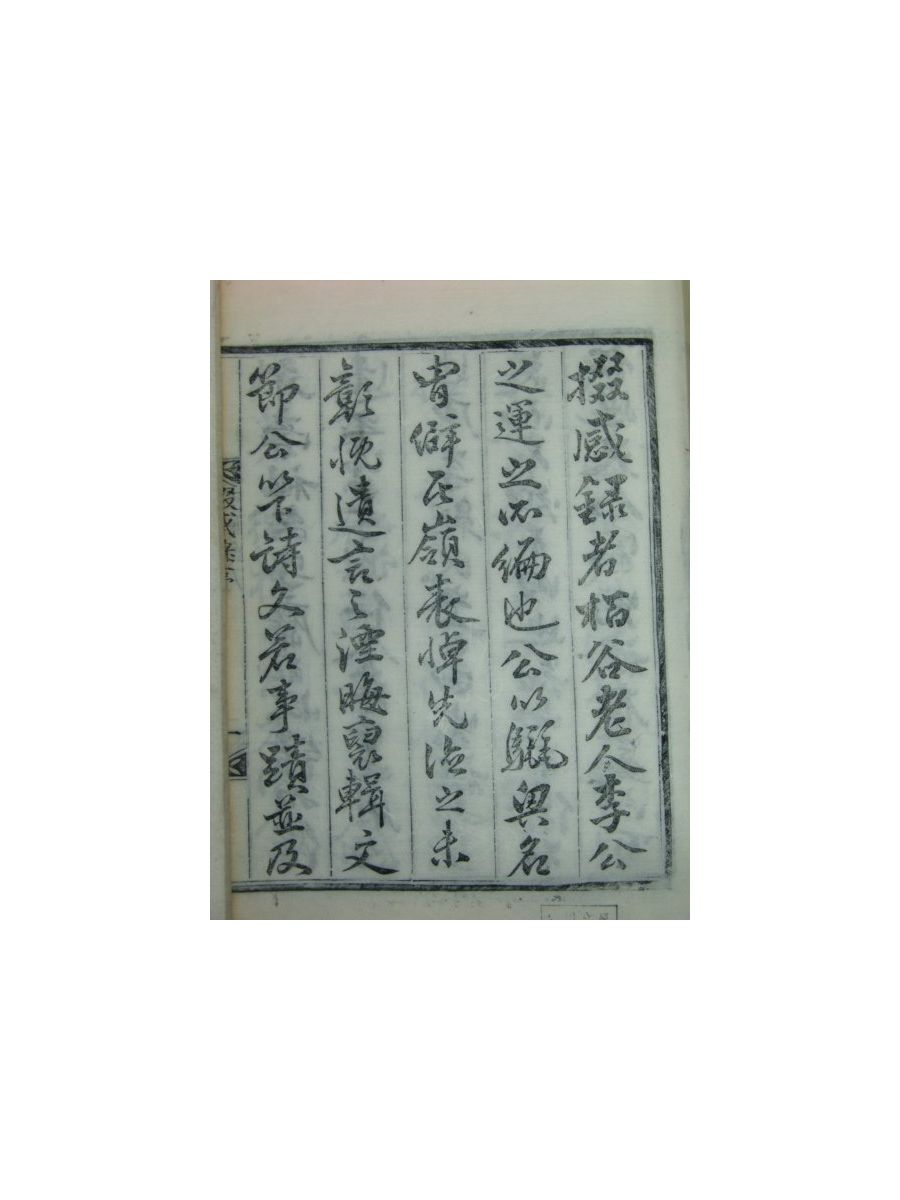 掇感録者栢谷老人李公
之運之所編也公以驪興名
胄僻在嶺表悼先流之未
彰慨遺言之湮晦裒輯文
節公以下詩文若事蹟並及
掇感錄序
一